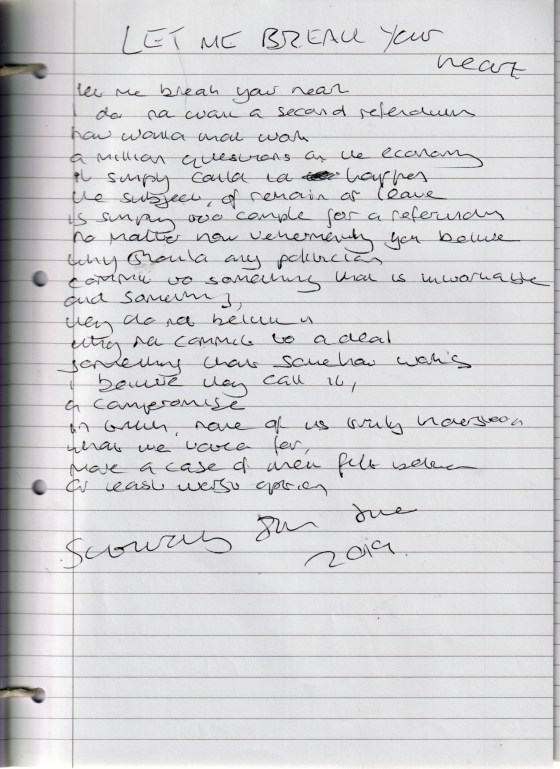 LET ME BREAK YOUR
HEART
let me break your heart
I do not want a second referendum
how would that work
a million questions on the economy
it simply could not happen
the subject, of remain or leave
is simply too complex for a referendum
no matter how vehemently you believe
why should any politician
commit to something that is unworkable
and something,
they do not believe in
why not commit to a deal
something that somehow works
I believe they call it,
a compromise
in truth, none of us truly understood
what we voted for,
more a case of
or least worst option
2019.